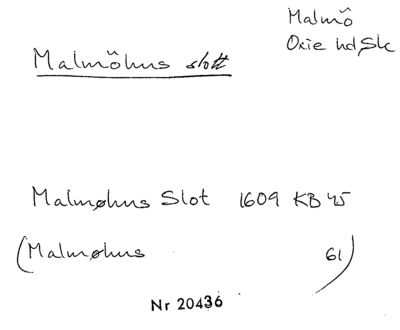 Malmö
Oxie hd, Sk
Malmöhus slott
Malmøhus Slot 1609 KB 45
(Malmøhus 61)
Nr 20436